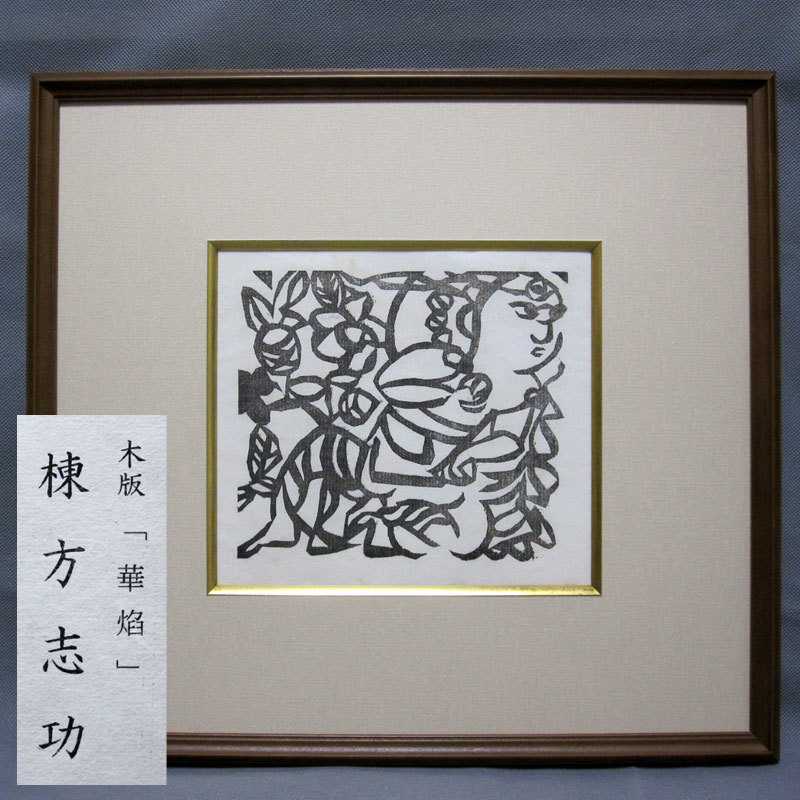 木版「華焰」
棟方志功